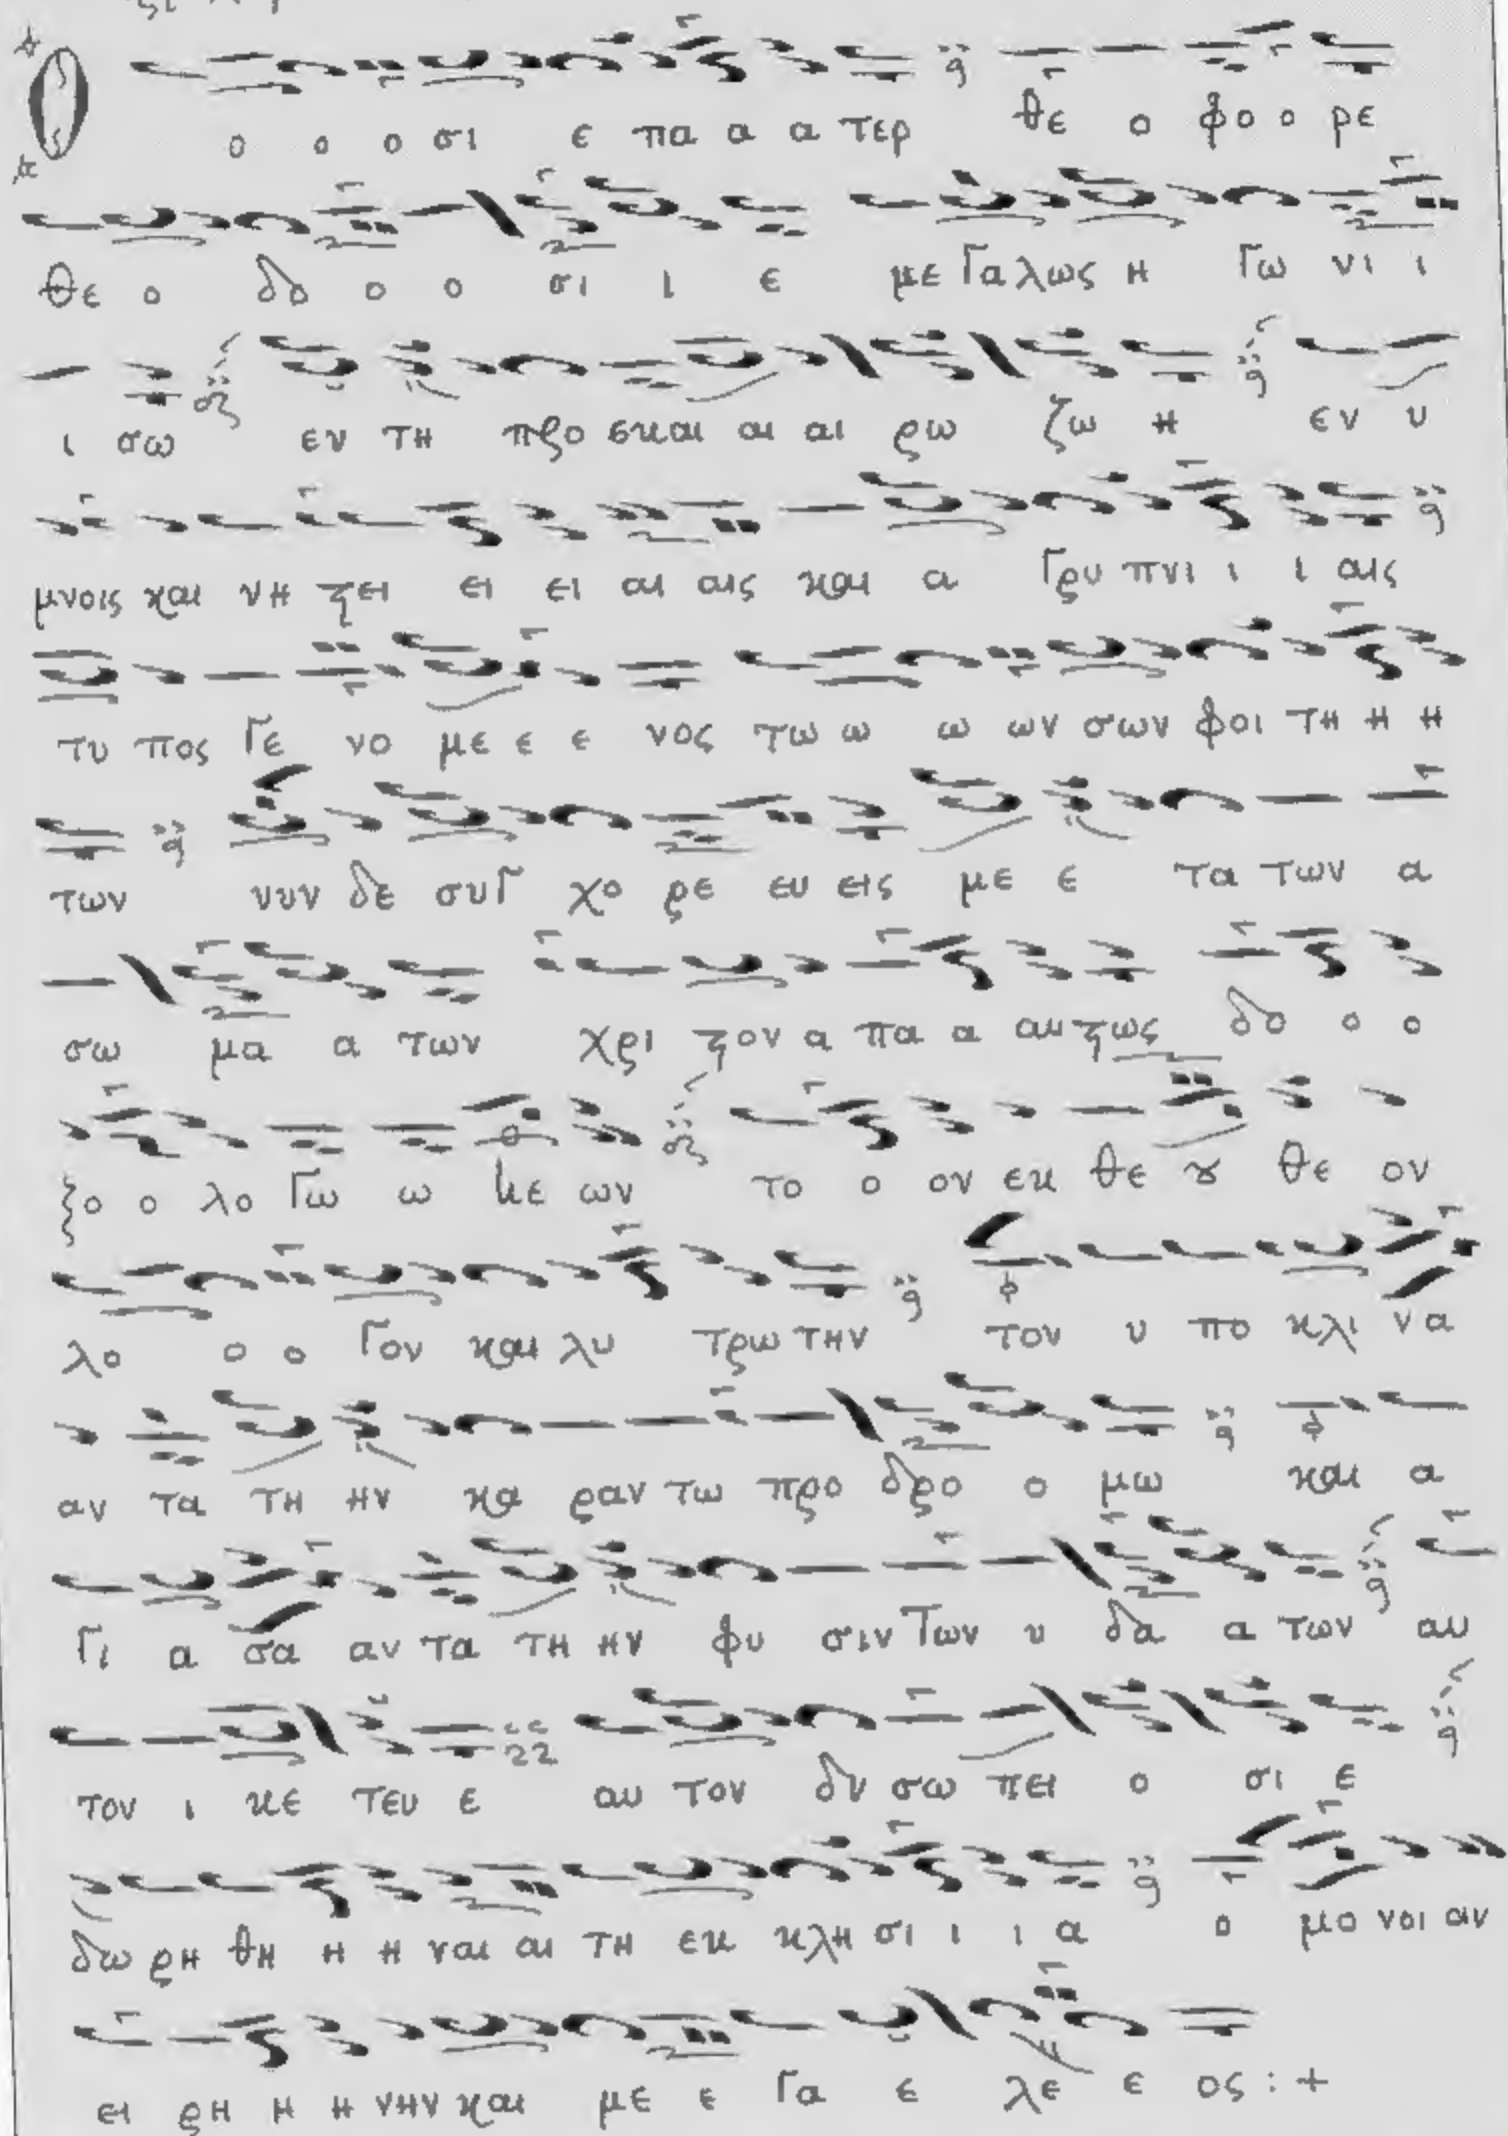 Ο ο ο ο σι ε πα α α τερ θε ο φο ο ρε
θε ο δο ο ο σι ι ε με γα λως η γω νι ι
ι σω εν τη προ σκαι αι αι ρω ζω η εν υ
μνοις και νη στει ει ει αι αις και α γρυ πνι ι ι αις
τυ πος γε νο με ε ε νος τω ω ω ων σων φοι τη η η
των νυν δε συγ χο ρε ευ εις με ε τα των α
σω μα α των χρι στον α πα α αυ στως δο ο ο
ξο ο λο γω ω κε ων το ο ον εκ θε ȣ θε ον
λο ο ο γον και λυ τρω την τον υ πο κλι να
αν τα τη ην κα ραν τω προ δρο ο μω και α
γι α σα αν τα τη ην φυ σιν των υ δα α των αυ
τον ι κε τευ ε αυ τον δυ σω πει ο σι ε
δω ρη θη η η ναι αι τη εκ κλη σι ι ι α ο μο νοι αν
ει ρη η η νην και με ε γα ε λε ε ος : +